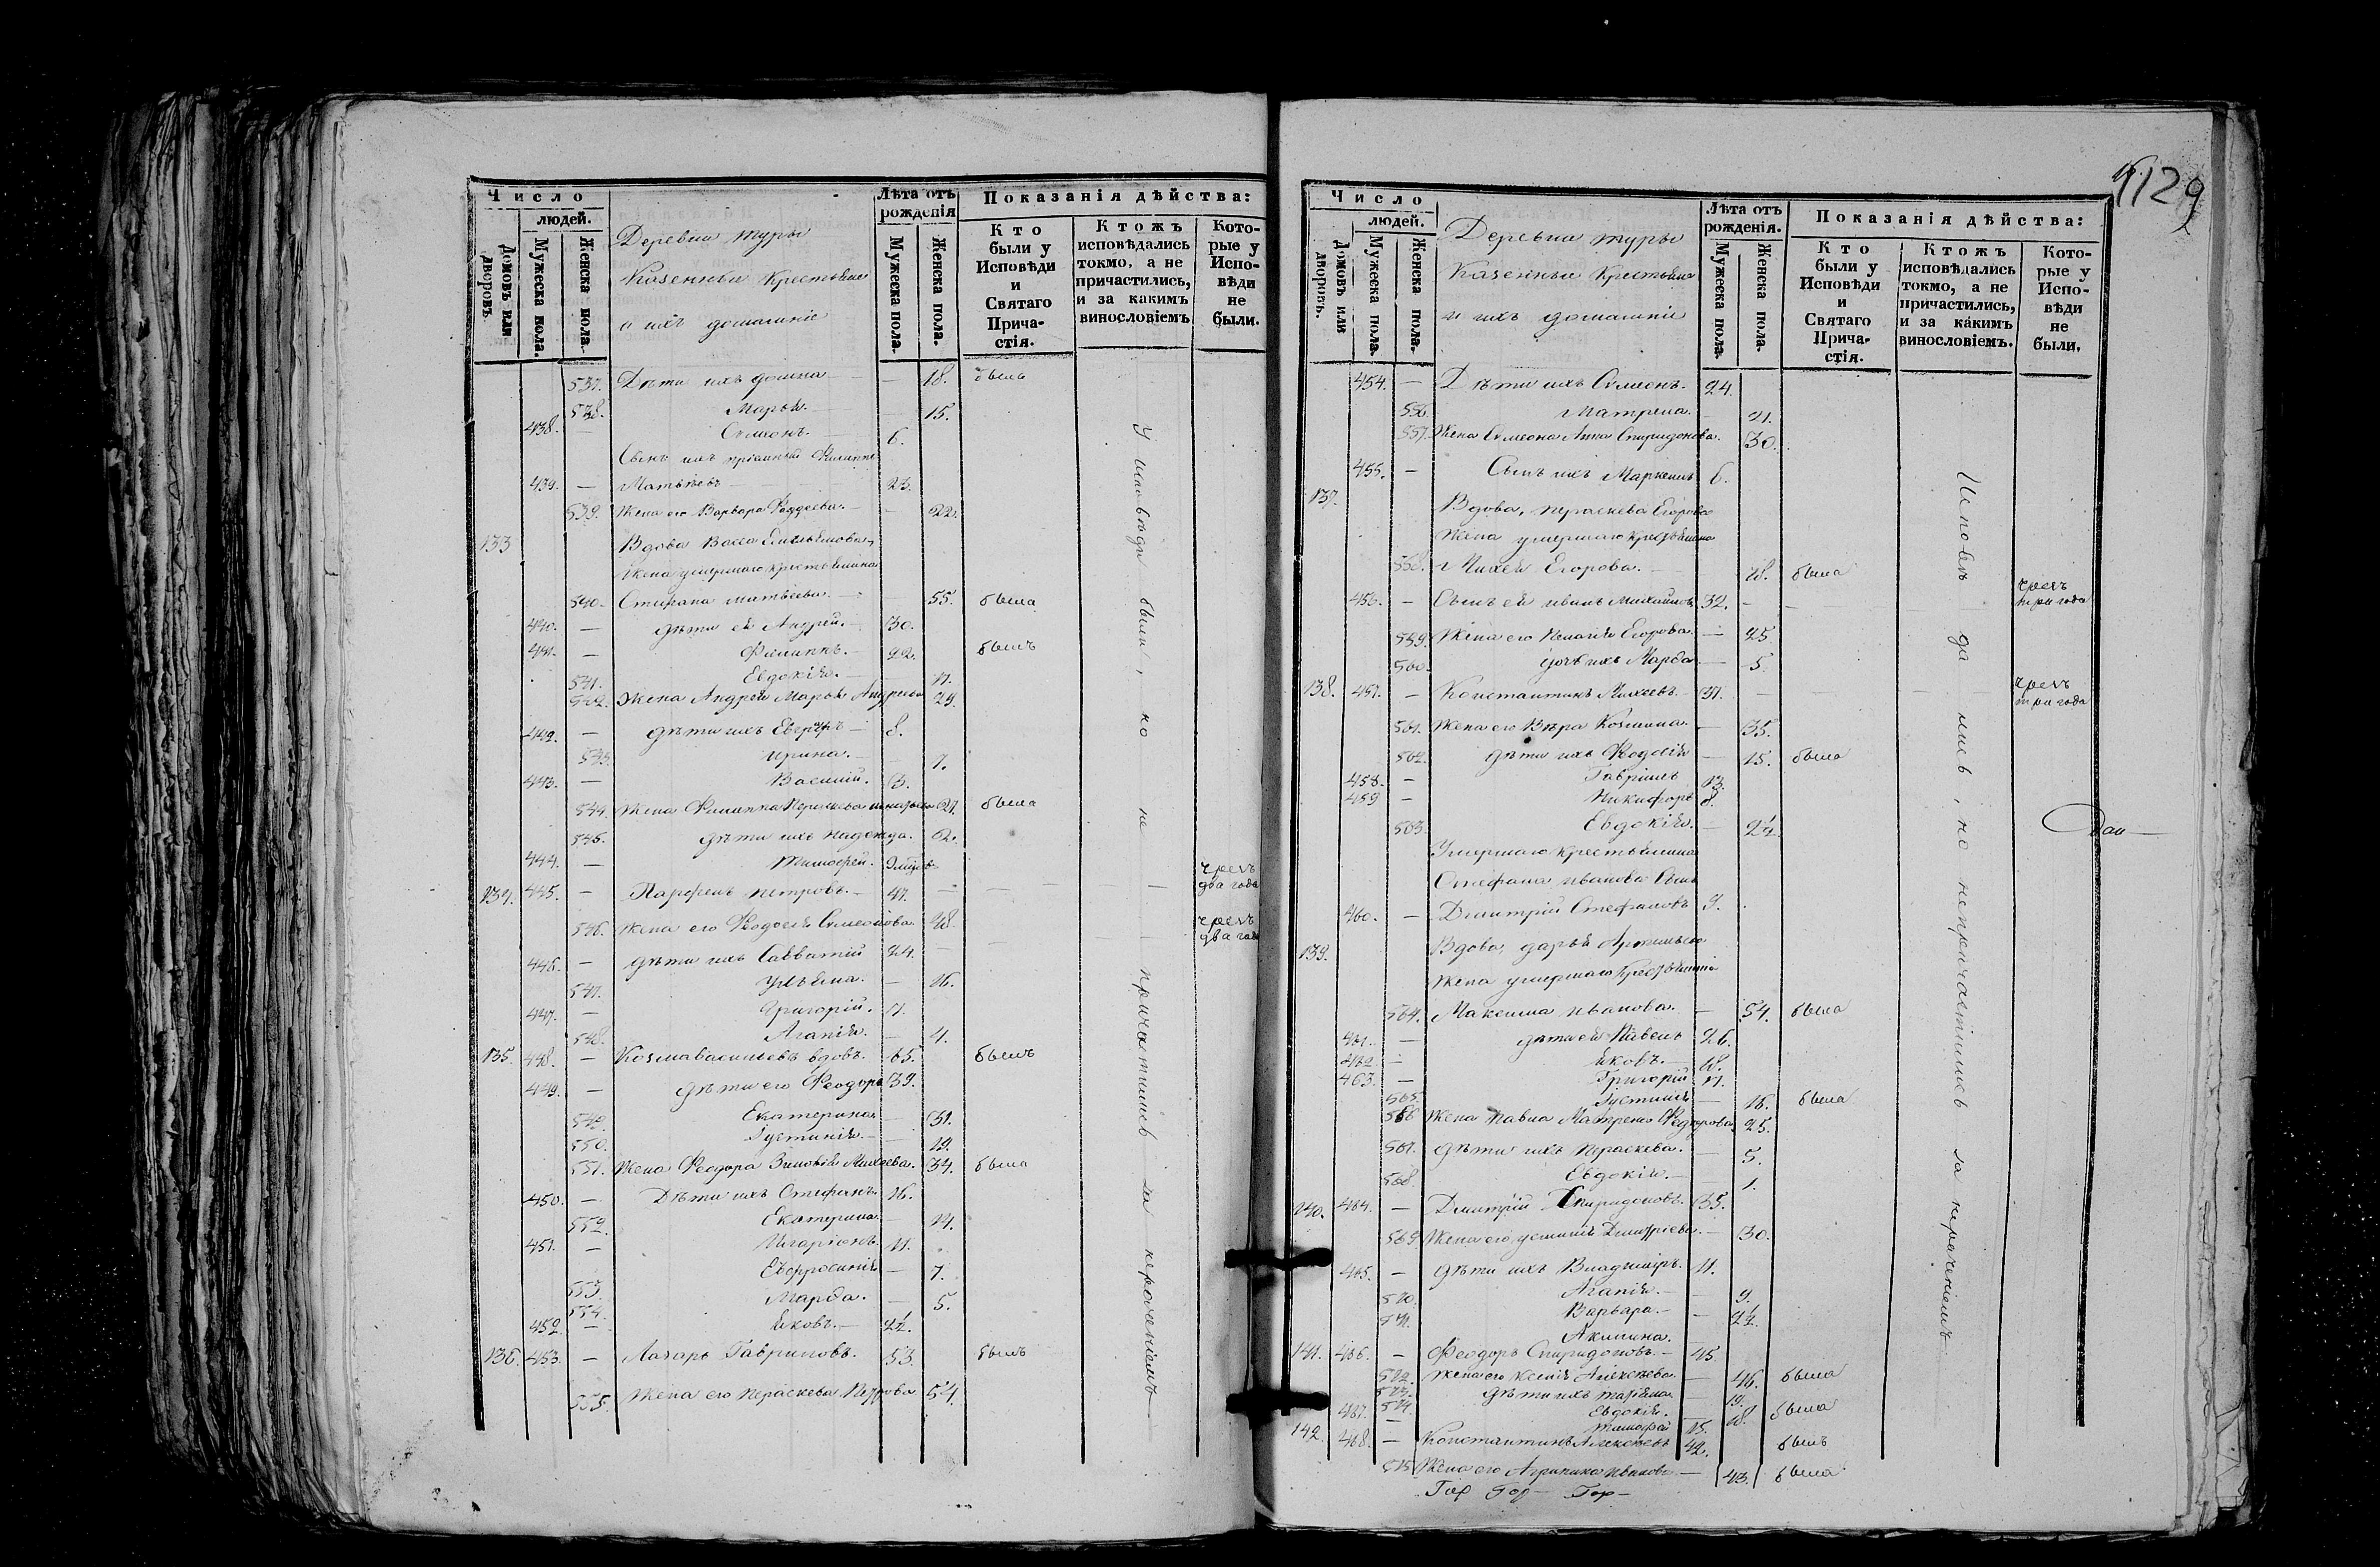 Число
людей.
Домовъ или дворовъ.
Мужеска пола.
Женска пола.
Деревни Туры
Казенныи Крестьяне
и ихъ домашніе
Лѣта отъ рожденія
Мужеска пола.
Женска пола.
Показанія дѣйства:
Кто были у Исповѣди и Святаго Причастія.
Ктожъ исповѣдались токмо, а не причастились, и за какимъ винословіемъ
Которые у Исповѣди не были.
537. Дѣти ихъ Домна — 18. была
538. Марья. — 15.
438. — Симеонъ. — 6.
Сынъ ихъ пріемный Филиппъ
439. — Матвѣевъ — 23.
539. Жена его Варвара Фаддеева. — 22.
133 Вдова Васса Емельянова,
Жена умершаго крестьянина
540. Стефана Матвѣева. — 55. была
440. — Дѣти ея Андрей. — 30.
441. — Филиппъ. — 22. былъ
541. Евдокія. — 17.
542. Жена Андрея Марья Андреева 29.
442. — Дѣти ихъ — 8.
543. Ирина. — 7.
443. — Василій. 3.
544. Жена Филиппа Пераскева 21. была
545. Дѣти ихъ Надежда. 2.
444. — Тимофей.
134. 445. — Парфенъ Петровъ. — 47. — чрезъ два года
546. Жена его Феодосія Симеонова. 48. — чрезъ два года
446. — Дѣти ихъ Савватій 24.
547. Ульяна. — 16.
447. — Григорій. 11.
548. Агапія. — 4.
135. 448. — Козма Васильевъ вдовъ. 65. былъ
449. — Дѣти его Феодоръ 39.
549. Екатерина — 31.
550. Іустинія. — 19.
551. Жена Феодора Зиновія Михеева. 34. была
450. — Дѣти ихъ Стефанъ. 16.
552. Екатерина. — 14.
451. — Иларіонъ. 11.
553. Евфросинія — 7.
554. Марфа. — 5.
452. — Яковъ. —
136. 453. — Лазарь Гавриловъ. 53. былъ
555. Жена его Пераскева Петрова 54.
У исповѣди были, но не причастились за нерачениемъ
129
Число
людей.
Домовъ или дворовъ.
Мужеска пола.
Женска пола.
Деревни Туры
Казенныи Крестьяне
и ихъ домашніе
Лѣта отъ рожденія.
Мужеска пола.
Женска пола.
Показанія дѣйства:
Кто были у Исповѣди и Святаго Причастія.
Ктожъ исповѣдались токмо, а не причастились, и за какимъ винословіемъ.
Которые у Исповѣди не были.
454. — Дѣти ихъ Симеонъ. 24.
556. Матрена. — 21.
557. Жена Симеона Анна Спиридонова. 30.
455. — Сынъ ихъ Маркеллъ 6.
137. Вдова, Пераскева Егорова
Жена умершаго крестьянина
558. Михея Егорова. — была
456. — Сынъ ея Иванъ Михайловъ 32. — чрезъ три года
559. Жена его Пелагія Егорова. — 25
560. Дочь ихъ Марфа — 5.
138. 457. — Константинъ Михеевъ. 37. — чрезъ три года
561. Жена его Вѣра Козмина. — 35.
562. Дѣти ихъ Феодосія — 15. была
458. — Гавріилъ 13.
459 — Никифоръ 8.
563. Евдокія. —
Умершаго крестьянина
Стефана Иванова Сынъ
460. — Димитрій Стефановъ 9.
139. Вдова, Дарья Артемьева
Жена умершаго крестьянина
564. Максима Иванова. — 54. была
461. — Дѣти ея Павелъ 26.
462. — Яковъ. — 18.
463. — Григорій. 17.
565. Іустинія — 16. была
566 Жена Павла Матрена Феодорова 25.
567. Дѣти ихъ Пераскева. — 5.
568 Евдокія. — 1.
140. 464. — Димитрій Спиридоновъ. 35.
569 Жена его Устинія Димитріева. — 30.
465. — Дѣти ихъ Владимиръ. 11.
570. Агапія. — 9.
571. Варвара. —
Акилина.
141. 466. — Феодоръ Спиридоновъ. — 45.
572. Жена его Ксенія Алексѣева. — 46. была
573. Дѣти ихъ Татьяна — 19.
574. Евдокія. — 18. была
467. — Тимофей 15.
142. 468. — Константинъ Алексѣевъ 42. былъ
575 Жена его Агрипина Иванова — 43. была